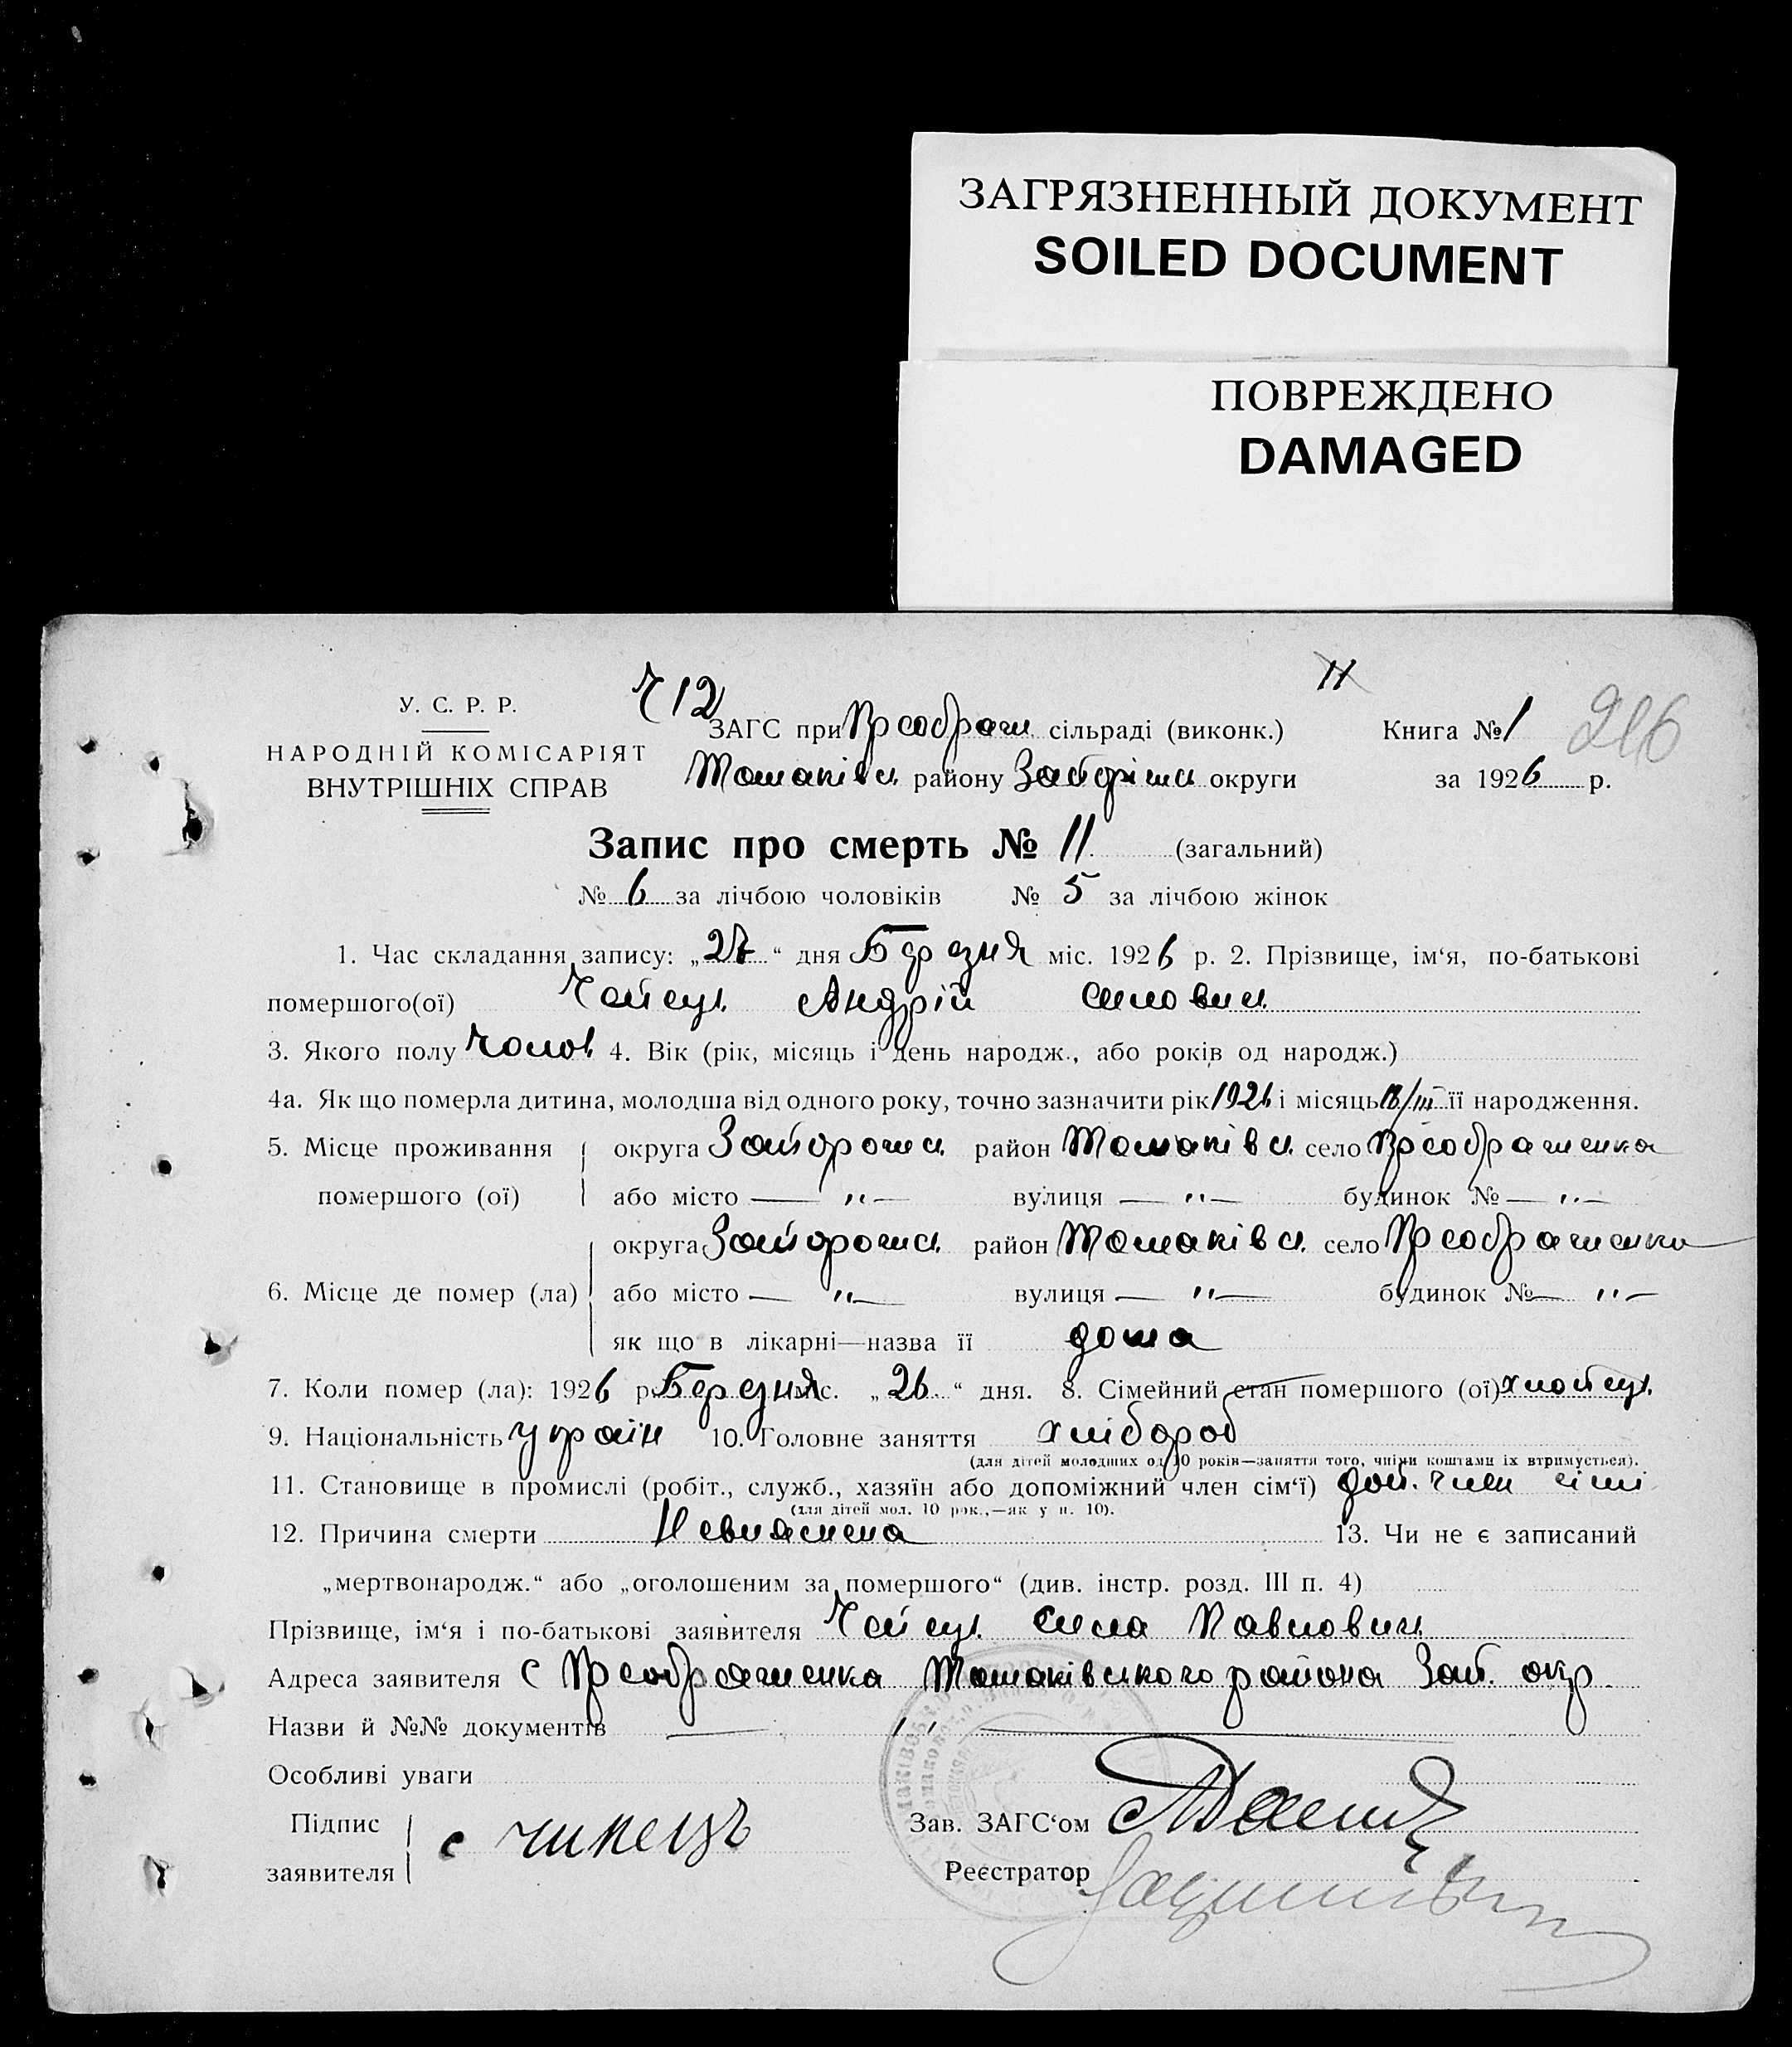 ЗАГРЯЗНЕННЫЙ ДОКУМЕНТ
SOILED DOCUMENT
ПОВРЕЖДЕНО
DAMAGED
11
У. С. Р. Р.
НАРОДНІЙ КОМІСАРІЯТ
ВНУТРІШНІХ СПРАВ
Ч12
ЗАГС при Преображ сільраді (виконк.)
Томаківск району округи
Книга № 1
216
за 1926 р.
Запис про смерть № 11 (загальний)
№ 6 за лічбою чоловіків № 5 за лічбою жінок
1. Час складання запису: „27“ дня Березня міс. 1926 р. 2. Прізвище, ім‘я, по-батькові
помершого(ої) Андрій Силович
3. Якого полу Чолов 4. Вік (рік, місяць і день народж., або років од народж.)
4а. Як що померла дитина, молодша від одного року, точно зазначити рік 1926 і місяць її народження.
5. Місце проживання округа Запорожск район Томаківск село Преображенка
помершого (ої) або місто — „ — вулиця — „ — будинок № — „ —
округа Запорожск район Томаківск село Преображенка
6. Місце де помер (ла) або місто — „ — вулиця — „ — будинок № — „ —
як що в лікарні—назва її дома
7. Коли помер (ла): 1926 р. Березня міс. „26“ дня. 8. Сімейний стан помершого (ої)
9. Національність україн 10. Головне заняття хлібороб
(для дітей молодших од 10 років—заняття того, чиїми коштами їх втримується).
11. Становище в промислі (робіт., служб., хазяїн або допоміжний член сім‘ї) доп. член сімї
(для дітей мол. 10 рок.,—як у п. 10).
12. Причина смерти Невияснена 13. Чи не є записаний
„мертвонародж.“ або „оголошеним за помершого“ (див. інстр. розд. III п. 4)
Прізвище, ім‘я і по-батькові заявителя Сила Павлович
Адреса заявителя с Преображенка Томаківського района Зап. окр.
Назви й №№ документів — „ —
Особливі уваги
Підпис
заявителя
Зав. ЗАГС‘ом
Реєстратор